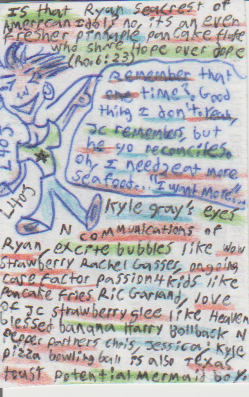 IS that Ryan seacrest of
American Idol? no, it's an even
fresher pineapple pancake
who share Hope over dope
(Ro. 6:23)
Remember that
one time? Good
thing I don't
JC remembers but
he yo reconciles.
oh, I need eat more
seafood..." I want more..."
L405
L405
Kyle gray's eyes
N communications of
Ryan, excite bubbles like wow
strawberry Rachel Gasser, ongoing
care factor passion 4 kids like
Pancake fries Ric Garland, love
of JC strawberry glee like Heaven
praised banana Harry Bollback N
pepper partners chris, Jessica: Kyle
pizza bowling ball is also Texas
toast potential mermaid boy.